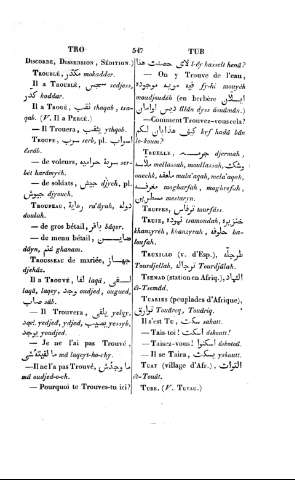 TRO 547 TUB
Discorde, Dissension, Sédition.)
Troublé, مكدّر mokaddar.
Il a Troublé, سجس sedjess,
كدّر kaddar.
Il a Troué, ثقب thaqab, tsa-
qab. (V. Il a Percé.)
— Il Trouera, يثقب ythqob.
Troupe, سرب serb, pl. اسراب
êsrâb.
— de voleurs, سربة حرامية ser-
bet harâmyéh.
— de soldats, جيش djéych, pl.
جيوش djyouch.
Troupeau, رعاية ra'âyah, دولة
doulah.
— de gros bétail, باقر bâqer.
— de menu bétail, ضاين
dâyn, غنم ghanam.
Trousseau de mariée, جهاز
djehâz.
Il a Trouvé, لقا laqâ, لقى
laqä, laqay, وجد oudjed,
صاب sâb.
— Il Trouvera, يلقي yelqy,
يجد yedjed, ydjed, يصيب yessyb,
يوجد yoedjed.
— Je ne l'ai pas Trouvé,
ما لقيته شي mâ laqeyt-ho-chy.
— Il ne l'a pas Trouvé, ما وجدش
mâ oudjed-o-ch.
— Pourquoi te Trouves-tu ici?
هذا حصلت لاي l-éy hasselt henâ?
— On y Trouve de l'eau,
فيه مويه موجوده fy-hi mouyéh
maudjoudéh (en berbère ايللان
ديس اوامان illân dyss âouâmân).
— Comment Trouvez-vous cela?
كيف هذا بان لكم kéf hadâ bân
le-koum?
Truelle, جرسمه djersméh,
ملاسه mellassah, mouttassah,
ملعقه mula'aqah, mela'aqah,
مغرفة magharfah, maghrefah,
مسطرين mestaryn.
Truffes, ترفاس tourfâss.
Truie, تموده tmoudéh, خنزيره
khanzyréh, khanzyrah, حلوفه ha-
loufah.
Truxillo (v. d'Esp.), طرجلّة
Tourdjellah, ترجاله Tourdjâlah.
Tsemad (station en Afriq.), الثماد
êt-Tsemâd.
Tuariks (peuplades d'Afrique),
توارق Touâreq, Touâriq.
Il s'est Tu, سكت sakat.
— Tais toi! اسكت ôskout!
— Taisez-vous! اسكتوا ôskotoû!
— Il se Taira, يسكت yskout.
Tuat (village d'Afr.), التوات
êt-Touât.
Tube. (V. Tuyau.)